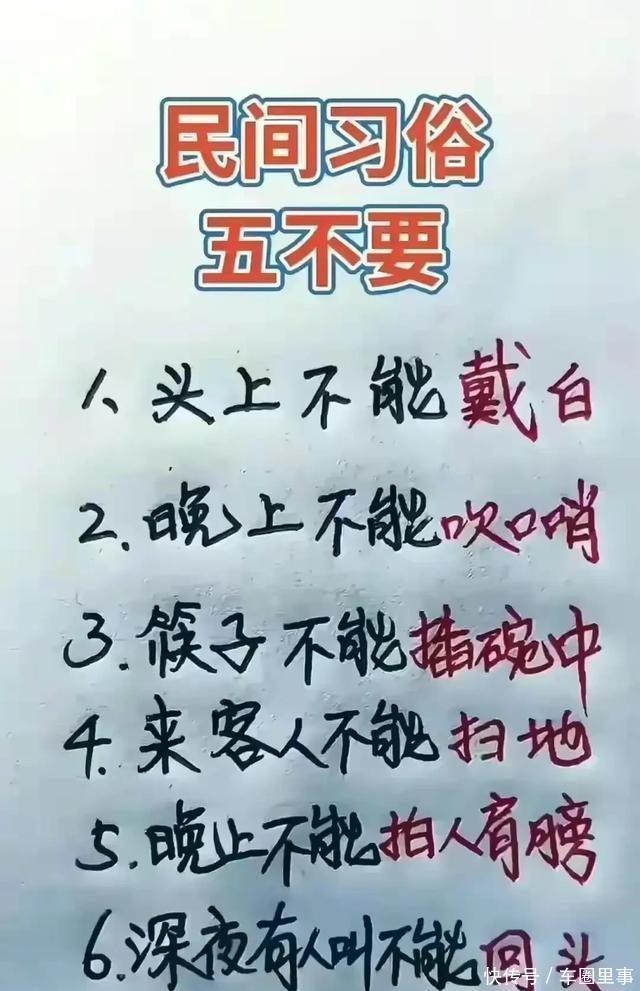 民间习俗
五不要
1、头上不能戴白
2.晚上不能吹口哨
3.筷子不能插碗中
4.来客人不能扫地
5.晚上不能拍人肩膀
6.深夜有人叫不能回头
快传号／车圈里事